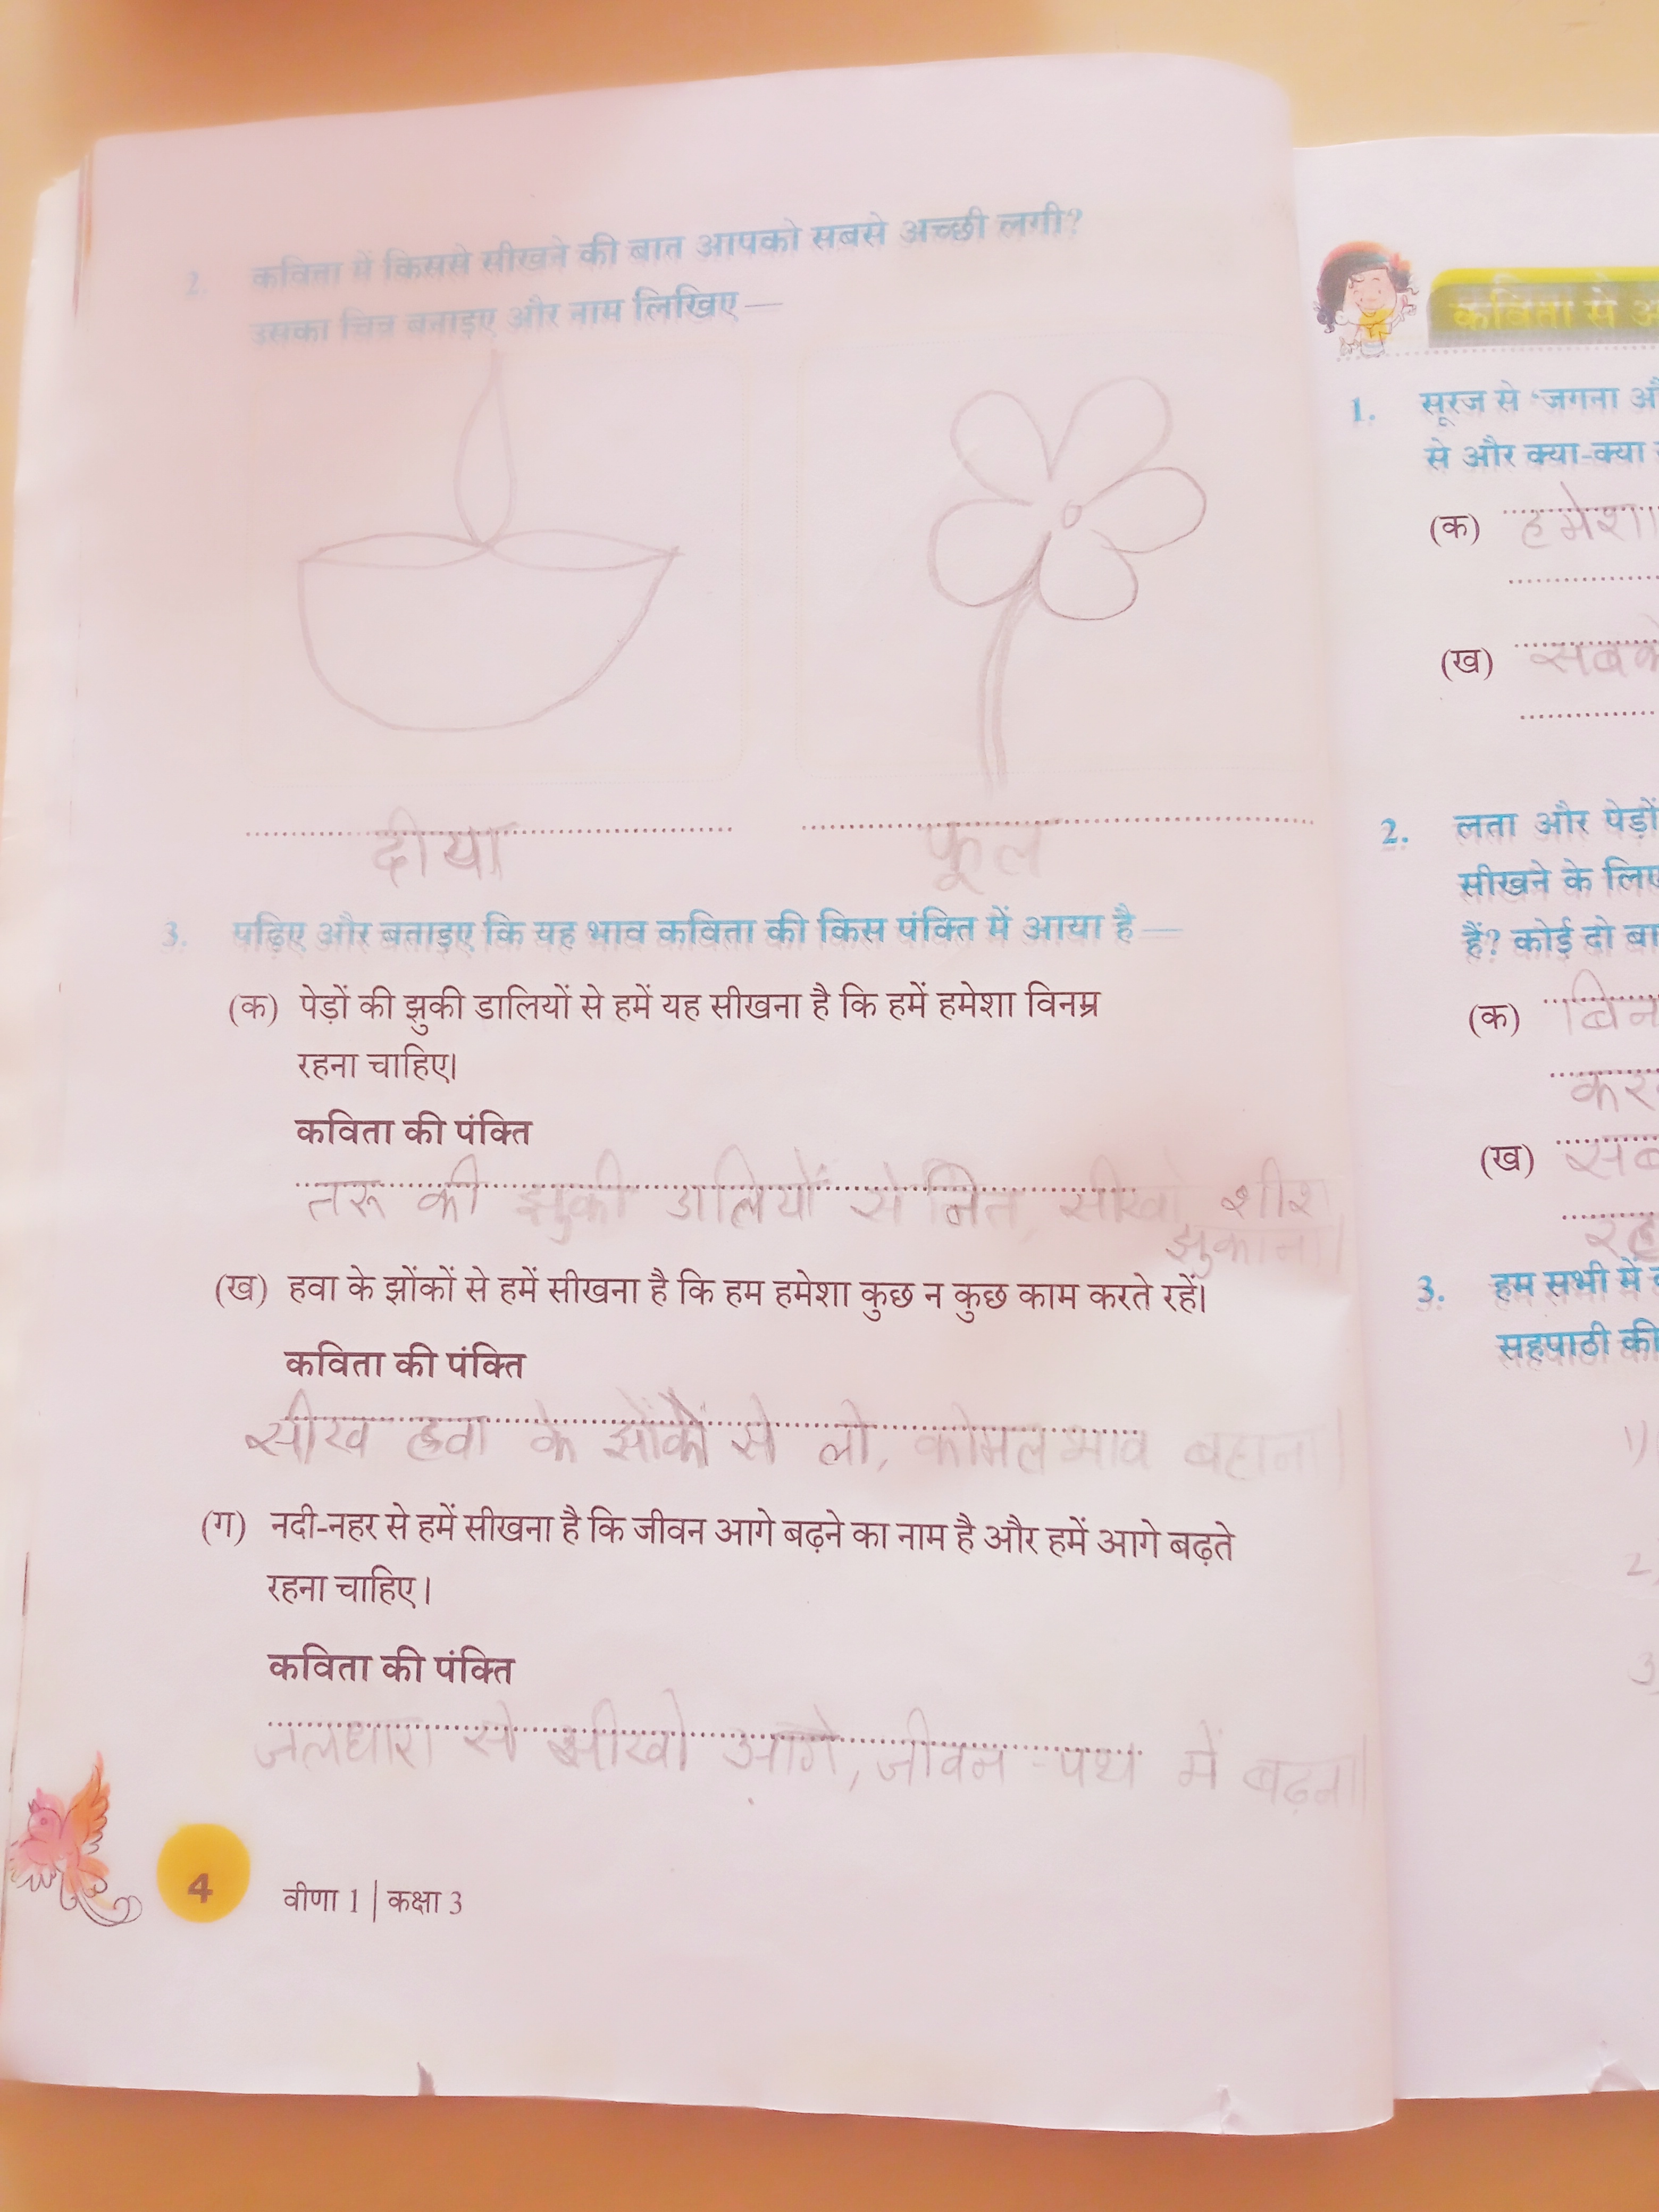 2. कविता में किससे सीखने की बात आपको सबसे अच्छी लगी?
उसका चित्र बनाइए और नाम लिखिए—
दीया
फूल
3. पढ़िए और बताइए कि यह भाव कविता की किस पंक्ति में आया है—
(क) पेड़ों की झुकी डालियों से हमें यह सीखना है कि हमें हमेशा विनम्र
रहना चाहिए।
कविता की पंक्ति
तरू की झुकी डालियों से नित, सीखो शीश
झुकाना।
(ख) हवा के झोंकों से हमें सीखना है कि हम हमेशा कुछ न कुछ काम करते रहें।
कविता की पंक्ति
सीख हवा के झोंकों से लो, कोमल भाव बहाना।
(ग) नदी-नहर से हमें सीखना है कि जीवन आगे बढ़ने का नाम है और हमें आगे बढ़ते
रहना चाहिए।
कविता की पंक्ति
जलधारा से सीखो आगे, जीवन-पथ में बढ़ना।
4 वीणा 1 | कक्षा 3
कविता से
1. सूरज से 'जगना
से और क्या-क्या
(क) हमेशा
(ख)
2. लता और पेड़ों
सीखने के
हैं? कोई दो
(क)
(ख)
3. हम सभी में
सहपाठी की
1)
2)
3)